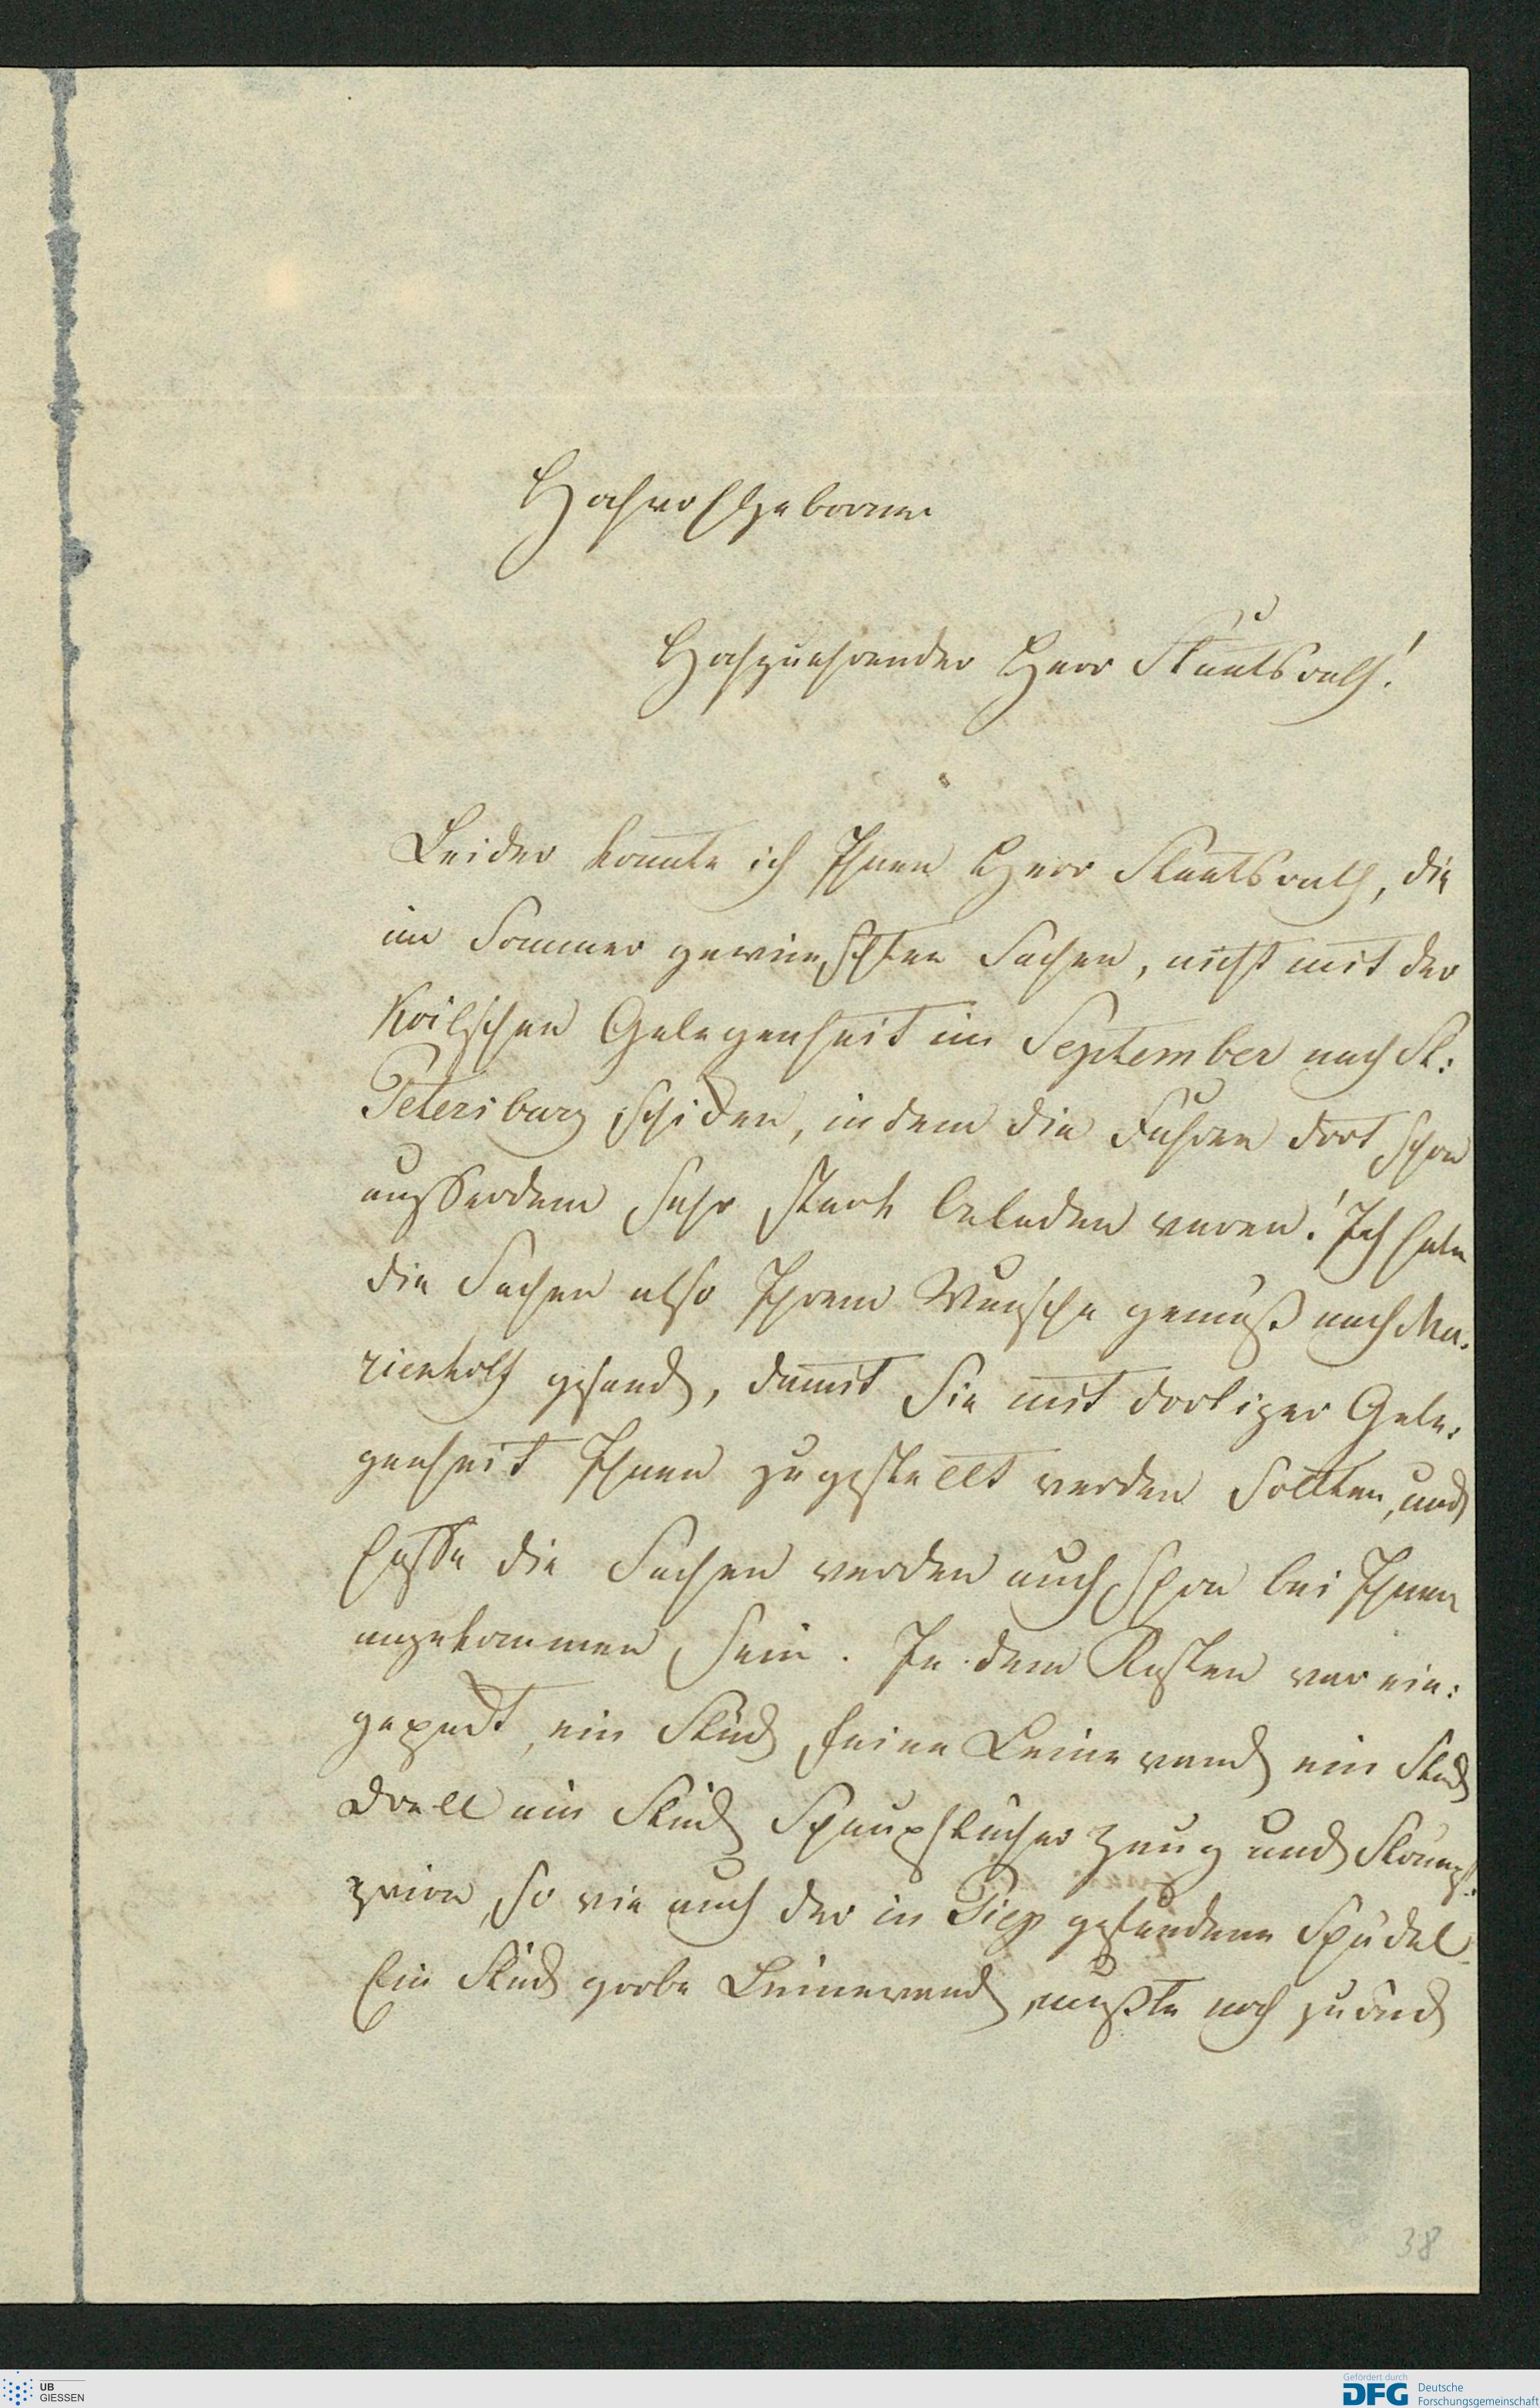 Hochwohlgeborner
Hochzuehrender Herr Staatsrath!
Leider konnte ich Ihnen Herr Staatsrath, die
im Sommer gewünschten Sachen, nicht mit der
Koilschen Gelegenheit im September nach St:
Petersburg schicken, indem die Fuhren dort schon
ausserdem sehr stark beladen waren! Ich habe
die Sachen also Ihrem Wunsche gemäß nach Ma-
rienhoff gesandt, damit Sie mit dortiger Gele-
genheit Ihnen zugestellt werden sollten, und
hoffe die Sachen werden auch schon bei Ihnen
angekommen sein. In dem Kasten war ein:
gepackt, ein Stück feine Leinewand ein Stück
Drell ein Stück Schnupftücher Zeug und Strumpf-
zwirn, so wie auch der in Piep gefundene Schädel
Ein Stück grobe Leinewand, mußte noch zurück
38
UB
GIESSEN
Gefördert durch
DFG Deutsche
Forschungsgemeinschaft